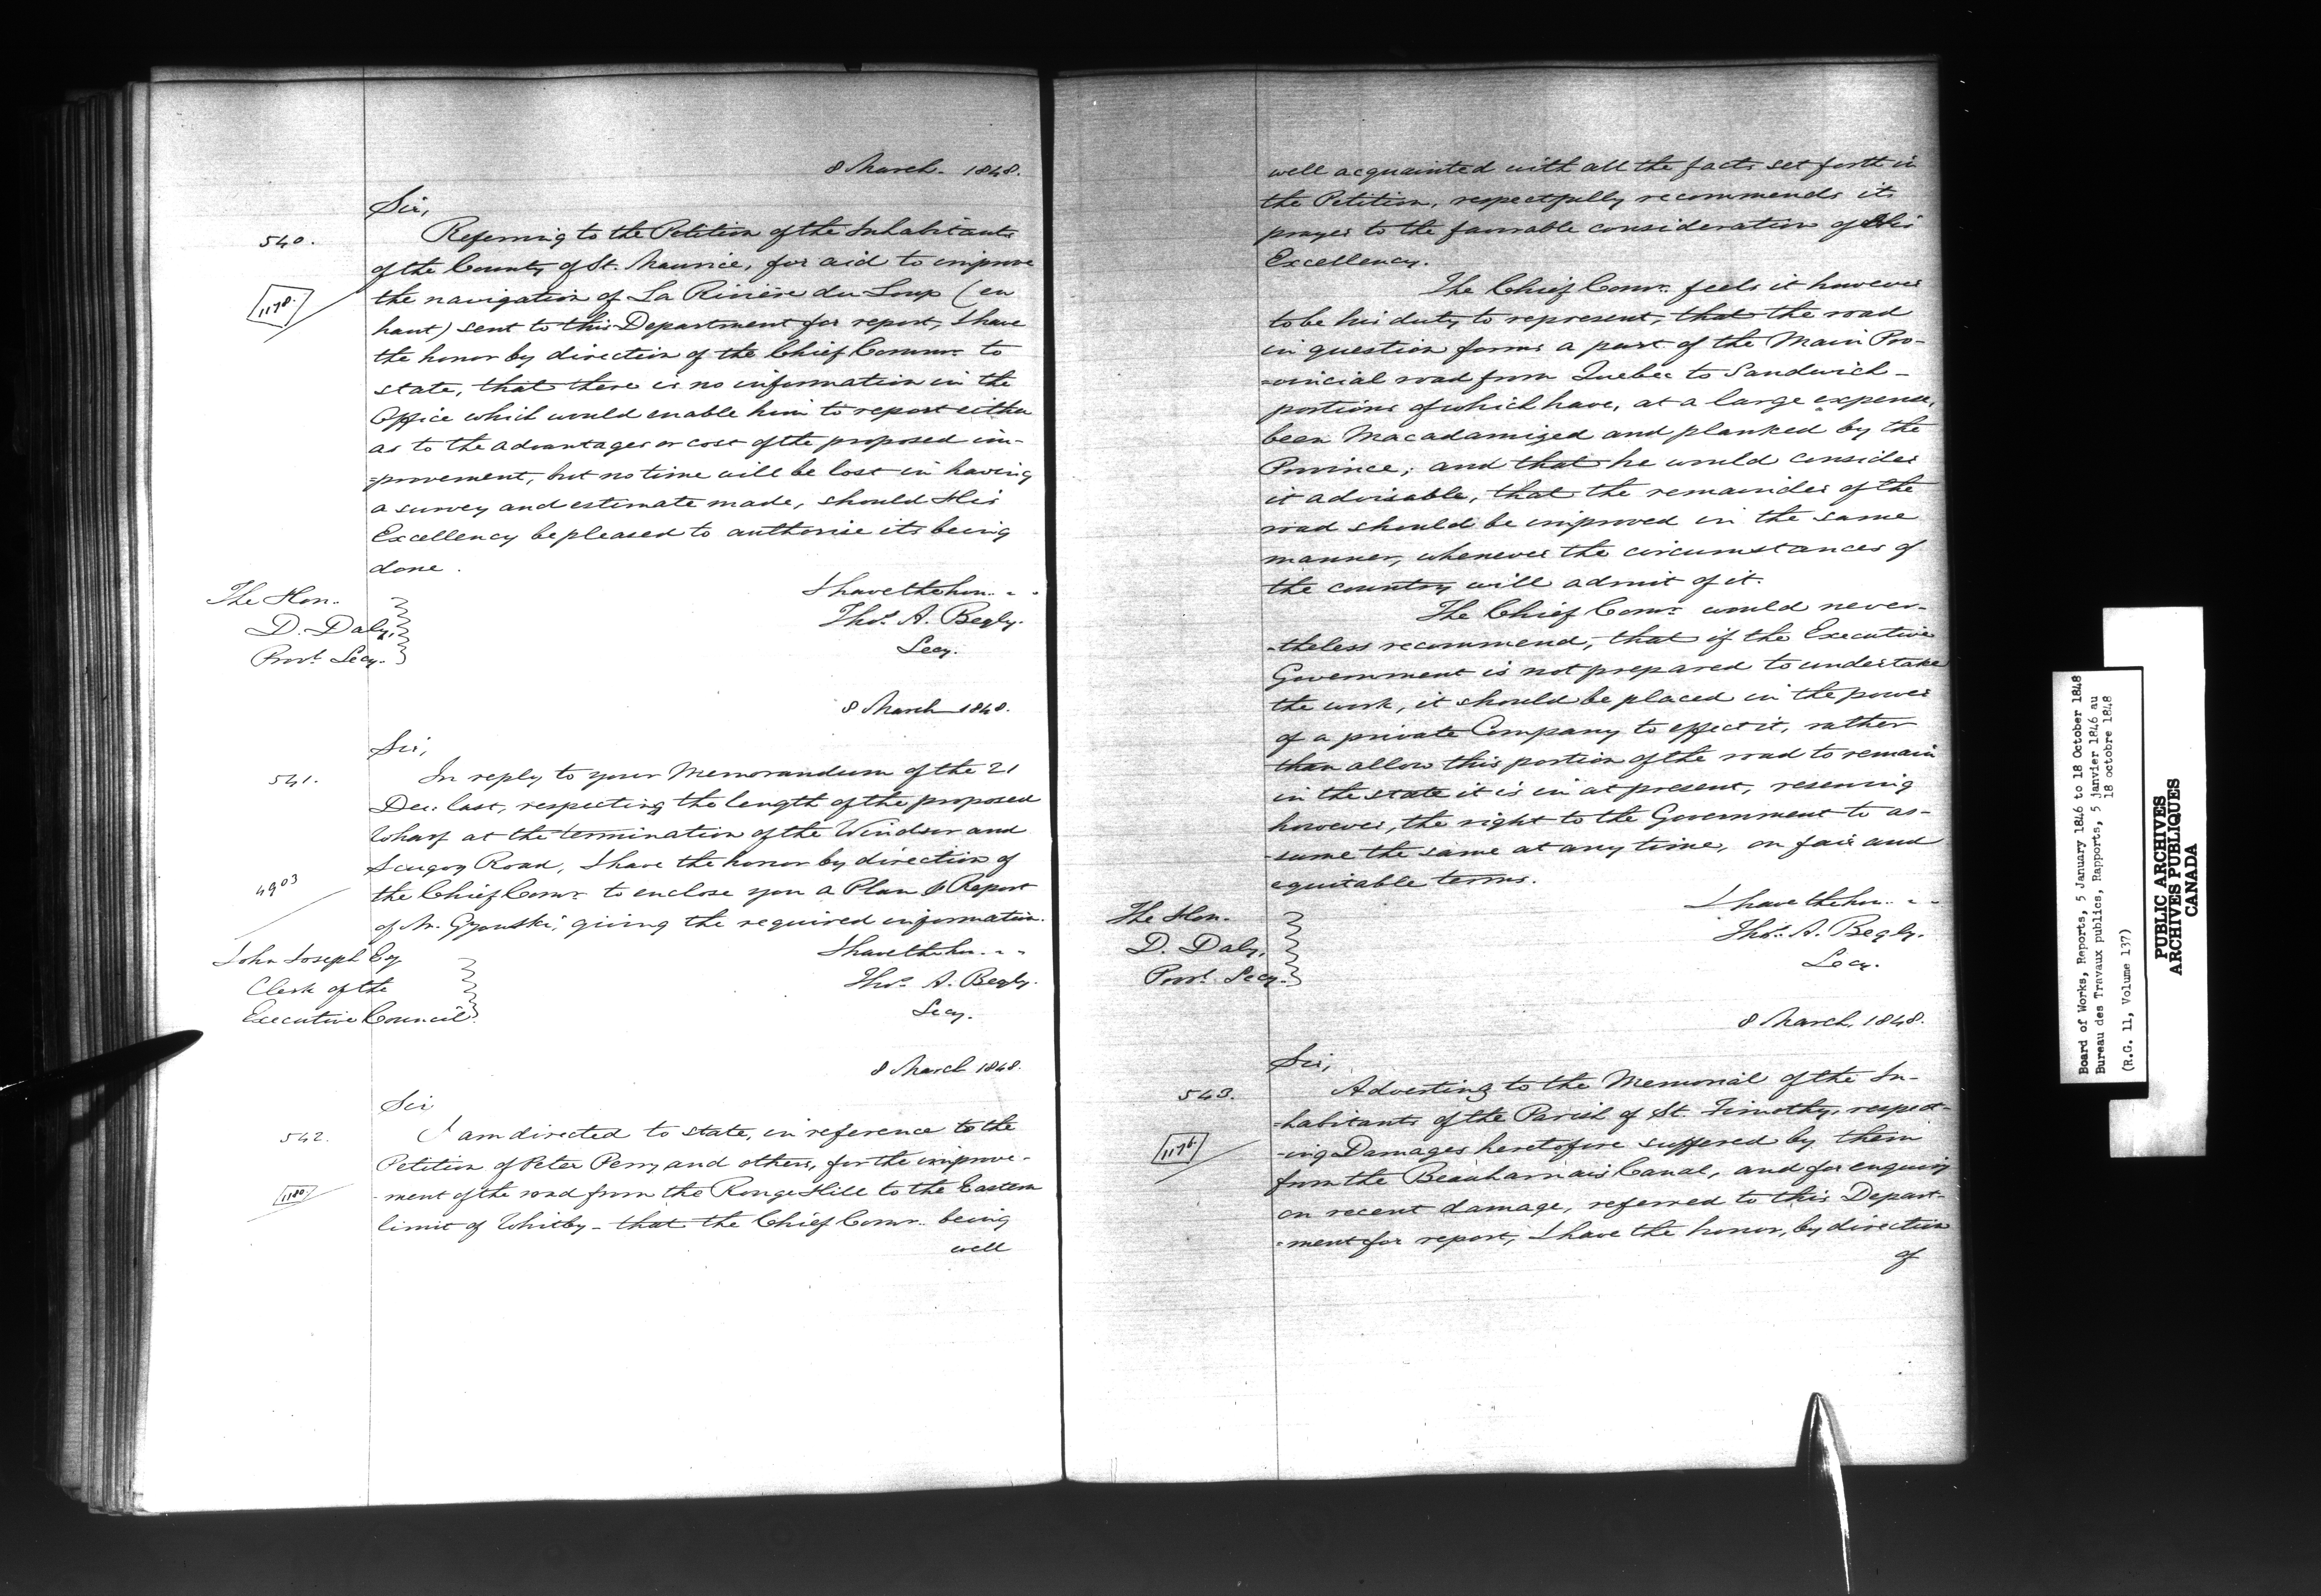 8 March - 1848.
Sir,
540.
Referring to the Petition of the Inhabitants
of the County of St. Maurice, for aid to improve
1178.
the navigation of La Rivière du Loup (en
haut) sent to this Department for report, I have
the honor by direction of the Chief Commr. to
state, that there is no information in the
Office which would enable him to report either
as to the advantages or cost of the proposed im-
=provement, but no time will be lost in having
a survey and estimate made, should His
Excellency be pleased to authorise its being
done.
I have the hon. - -
The Hon.
Thos. A. Begly.
D. Daly,
Secy.
Provl. Secy.
8 March 1848.
Sir,
541.
In reply to your Memorandum of the 21
Dec: last, respecting the length of the proposed
Wharf at the termination of the Windsor and
Scugog Road, I have the honor by direction of
4903
the Chief Comr. to enclose you a Plan & Report
of Mr. Gzowski, giving the required information.
I have the hon. - -
John Joseph Esq
Thos. A. Begly.
Clerk of the
Secy.
Executive Council.
8 March 1848.
Sir
542.
I am directed to state, in reference to the
Petition of Peter Perry and others, for the improve-
1180
-ment of the road from the Rouge Hill to the Eastern
limit of Whitby - that the Chief Comr. being
well
well acquainted with all the facts set forth in
the Petition, respectfully recommends its
prayer to the favorable consideration of His
Excellency.
The Chief Comr. feels it however
to be his duty to represent, that the road
in question forms a part of the Main Pro-
=vincial road from Quebec to Sandwich -
portions of which have, at a large expense,
been Macadamized and planked by the
Province; and that he would consider
it advisable, that the remainder of the
road should be improved in the same
manner, whenever the circumstances of
the country will admit of it.
The Chief Comr. would never-
-theless recommend, that if the Executive
Government is not prepared to undertake
the work, it should be placed in the power
of a private Company to effect it, rather
than allow this portion of the road to remain
in the state it is in at present, reserving
however, the right to the Government to as-
-sume the same at any time, on fair and
equitable terms.
I have the hon. - -
The Hon.
Thos. A. Begly.
D. Daly,
Secy.
Provl. Secy.
8 March, 1848.
Sir,
543.
Adverting to the Memorial of the In-
=habitants of the Parish of St. Timothy, respect-
1176
-ing Damages heretofore suffered by them
from the Beauharnais Canal, and for enquiry
on recent damage, referred to this Depart-
=ment for report, I have the honor, by direction
of
Board of Works, Reports, 5 January 1846 to 18 October 1848
Bureau des Travaux publics, Rapports, 5 janvier 1846 au
18 octobre 1848
(R.G. 11, Volume 137)
PUBLIC ARCHIVES
ARCHIVES PUBLIQUES
CANADA